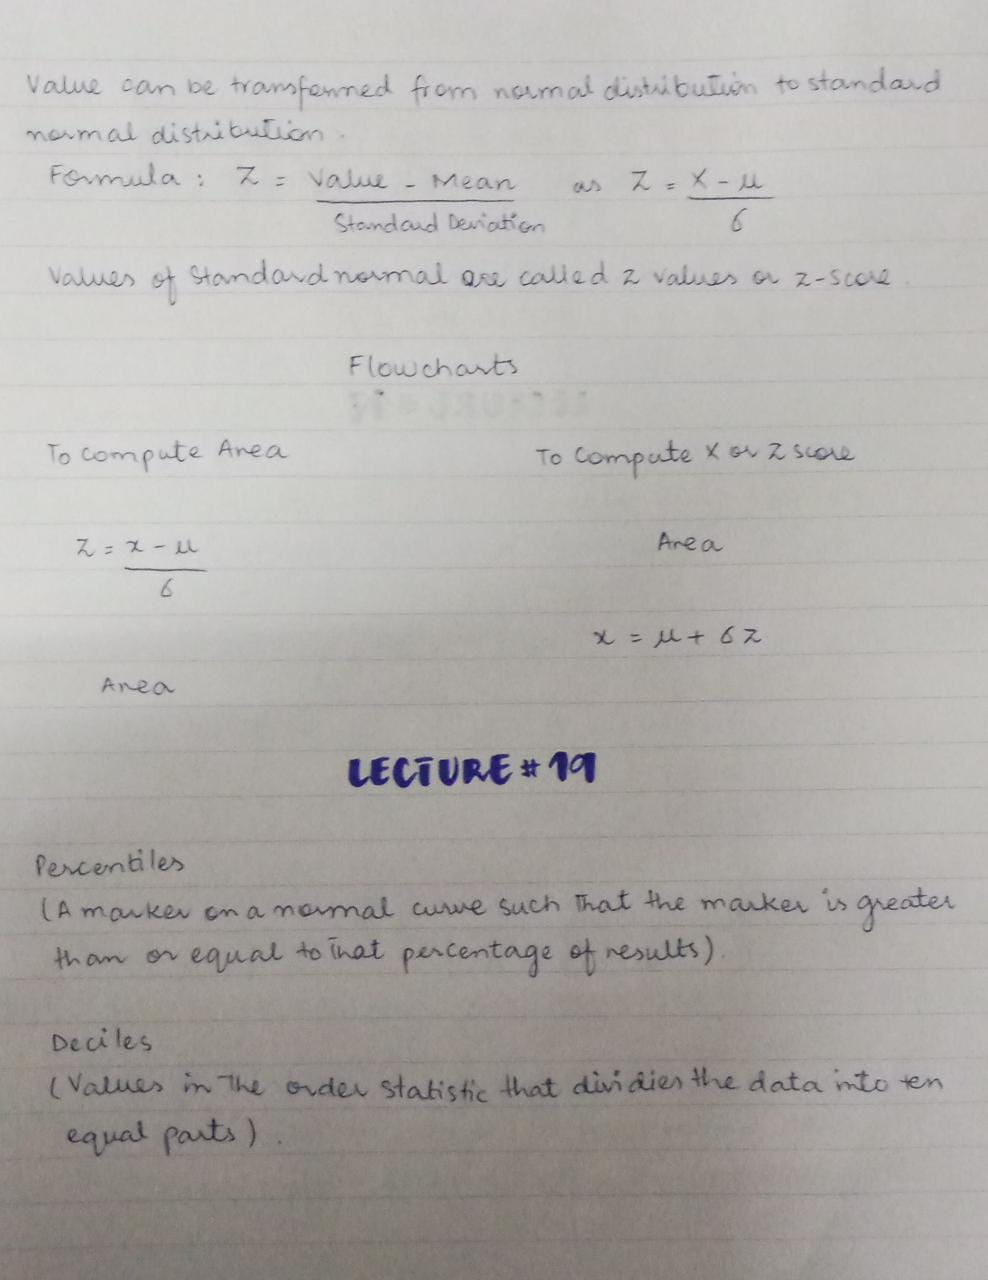 Value can be transformed from normal distribution to standard
normal distribution.
Formula : Z = Value - Mean / Standard Deviation as Z = X - μ / σ
Values of Standard normal are called z values or z-score.
Flowcharts
To compute Area
To compute X or Z score
Z = x - μ / σ
Area
x = μ + σz
Area
LECTURE # 19
Percentiles
(A marker on a normal curve such that the marker is greater
than or equal to that percentage of results).
Deciles
(Values in the order statistic that dividies the data into ten
equal parts).